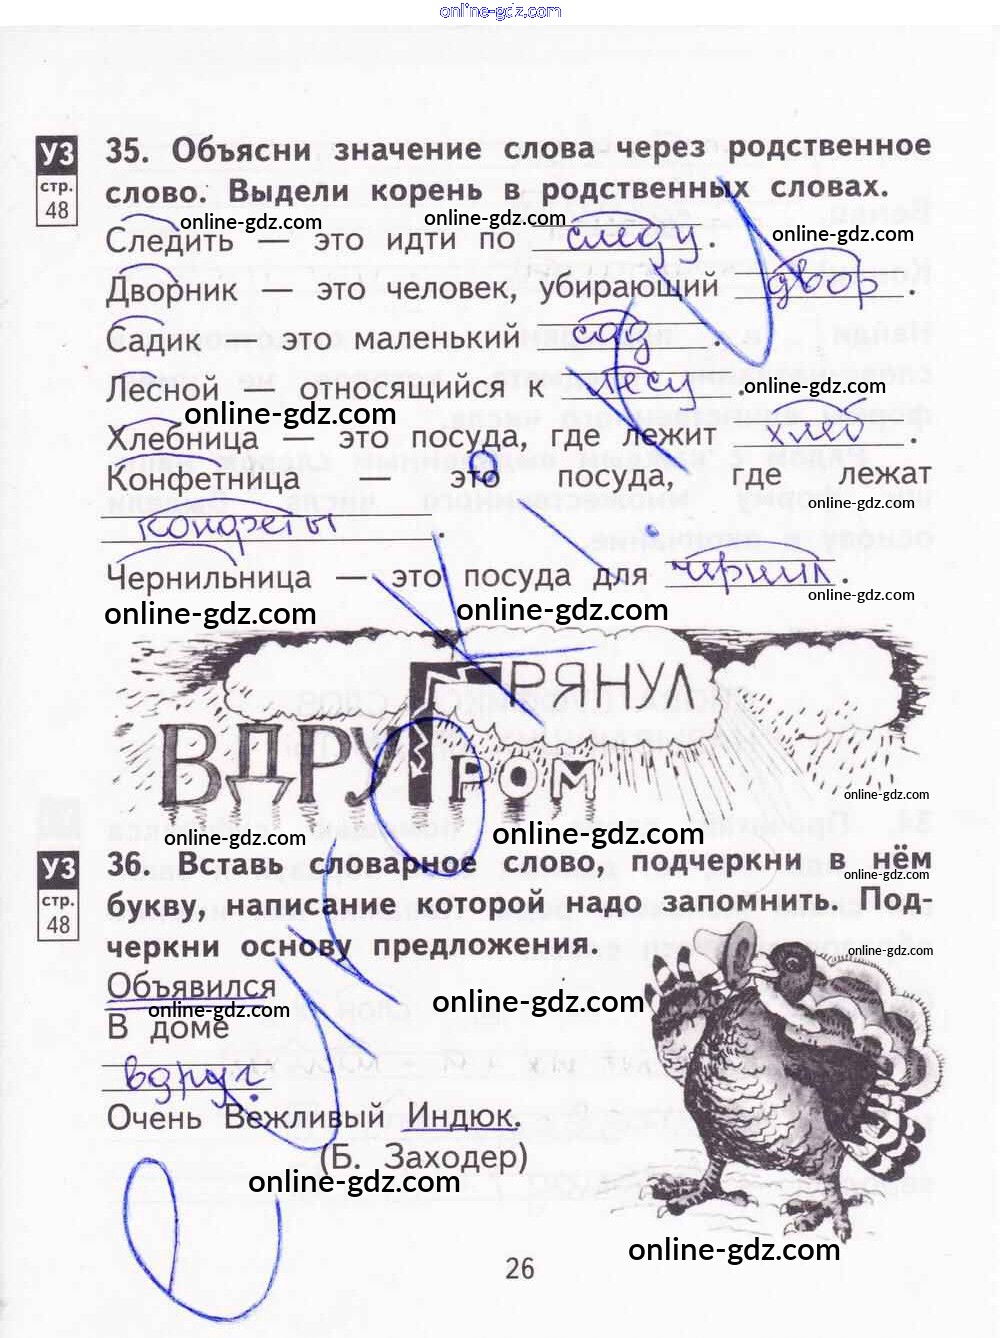 online-gdz.com
УЗ
стр.
48
35. Объясни значение слова через родственное
слово. Выдели корень в родственных словах.
online-gdz.com online-gdz.com online-gdz.com
Следить — это идти по следу.
Дворник — это человек, убирающий двор.
Садик — это маленький сад.
Лесной — относящийся к лесу.
online-gdz.com online-gdz.com
Хлебница — это посуда, где лежит хлеб.
Конфетница — это посуда, где лежат
конфеты.
online-gdz.com
Чернильница — это посуда для чернил.
online-gdz.com online-gdz.com online-gdz.com
ГРЯНУЛ
ВДРУГ
ГРОМ
online-gdz.com
online-gdz.com online-gdz.com
УЗ
стр.
48
36. Вставь словарное слово, подчеркни в нём
online-gdz.com
букву, написание которой надо запомнить. Под-
черкни основу предложения.
online-gdz.com
Объявился
online-gdz.com online-gdz.com
В доме
вдруг
Очень Вежливый Индюк.
(Б. Заходер)
online-gdz.com
online-gdz.com
26